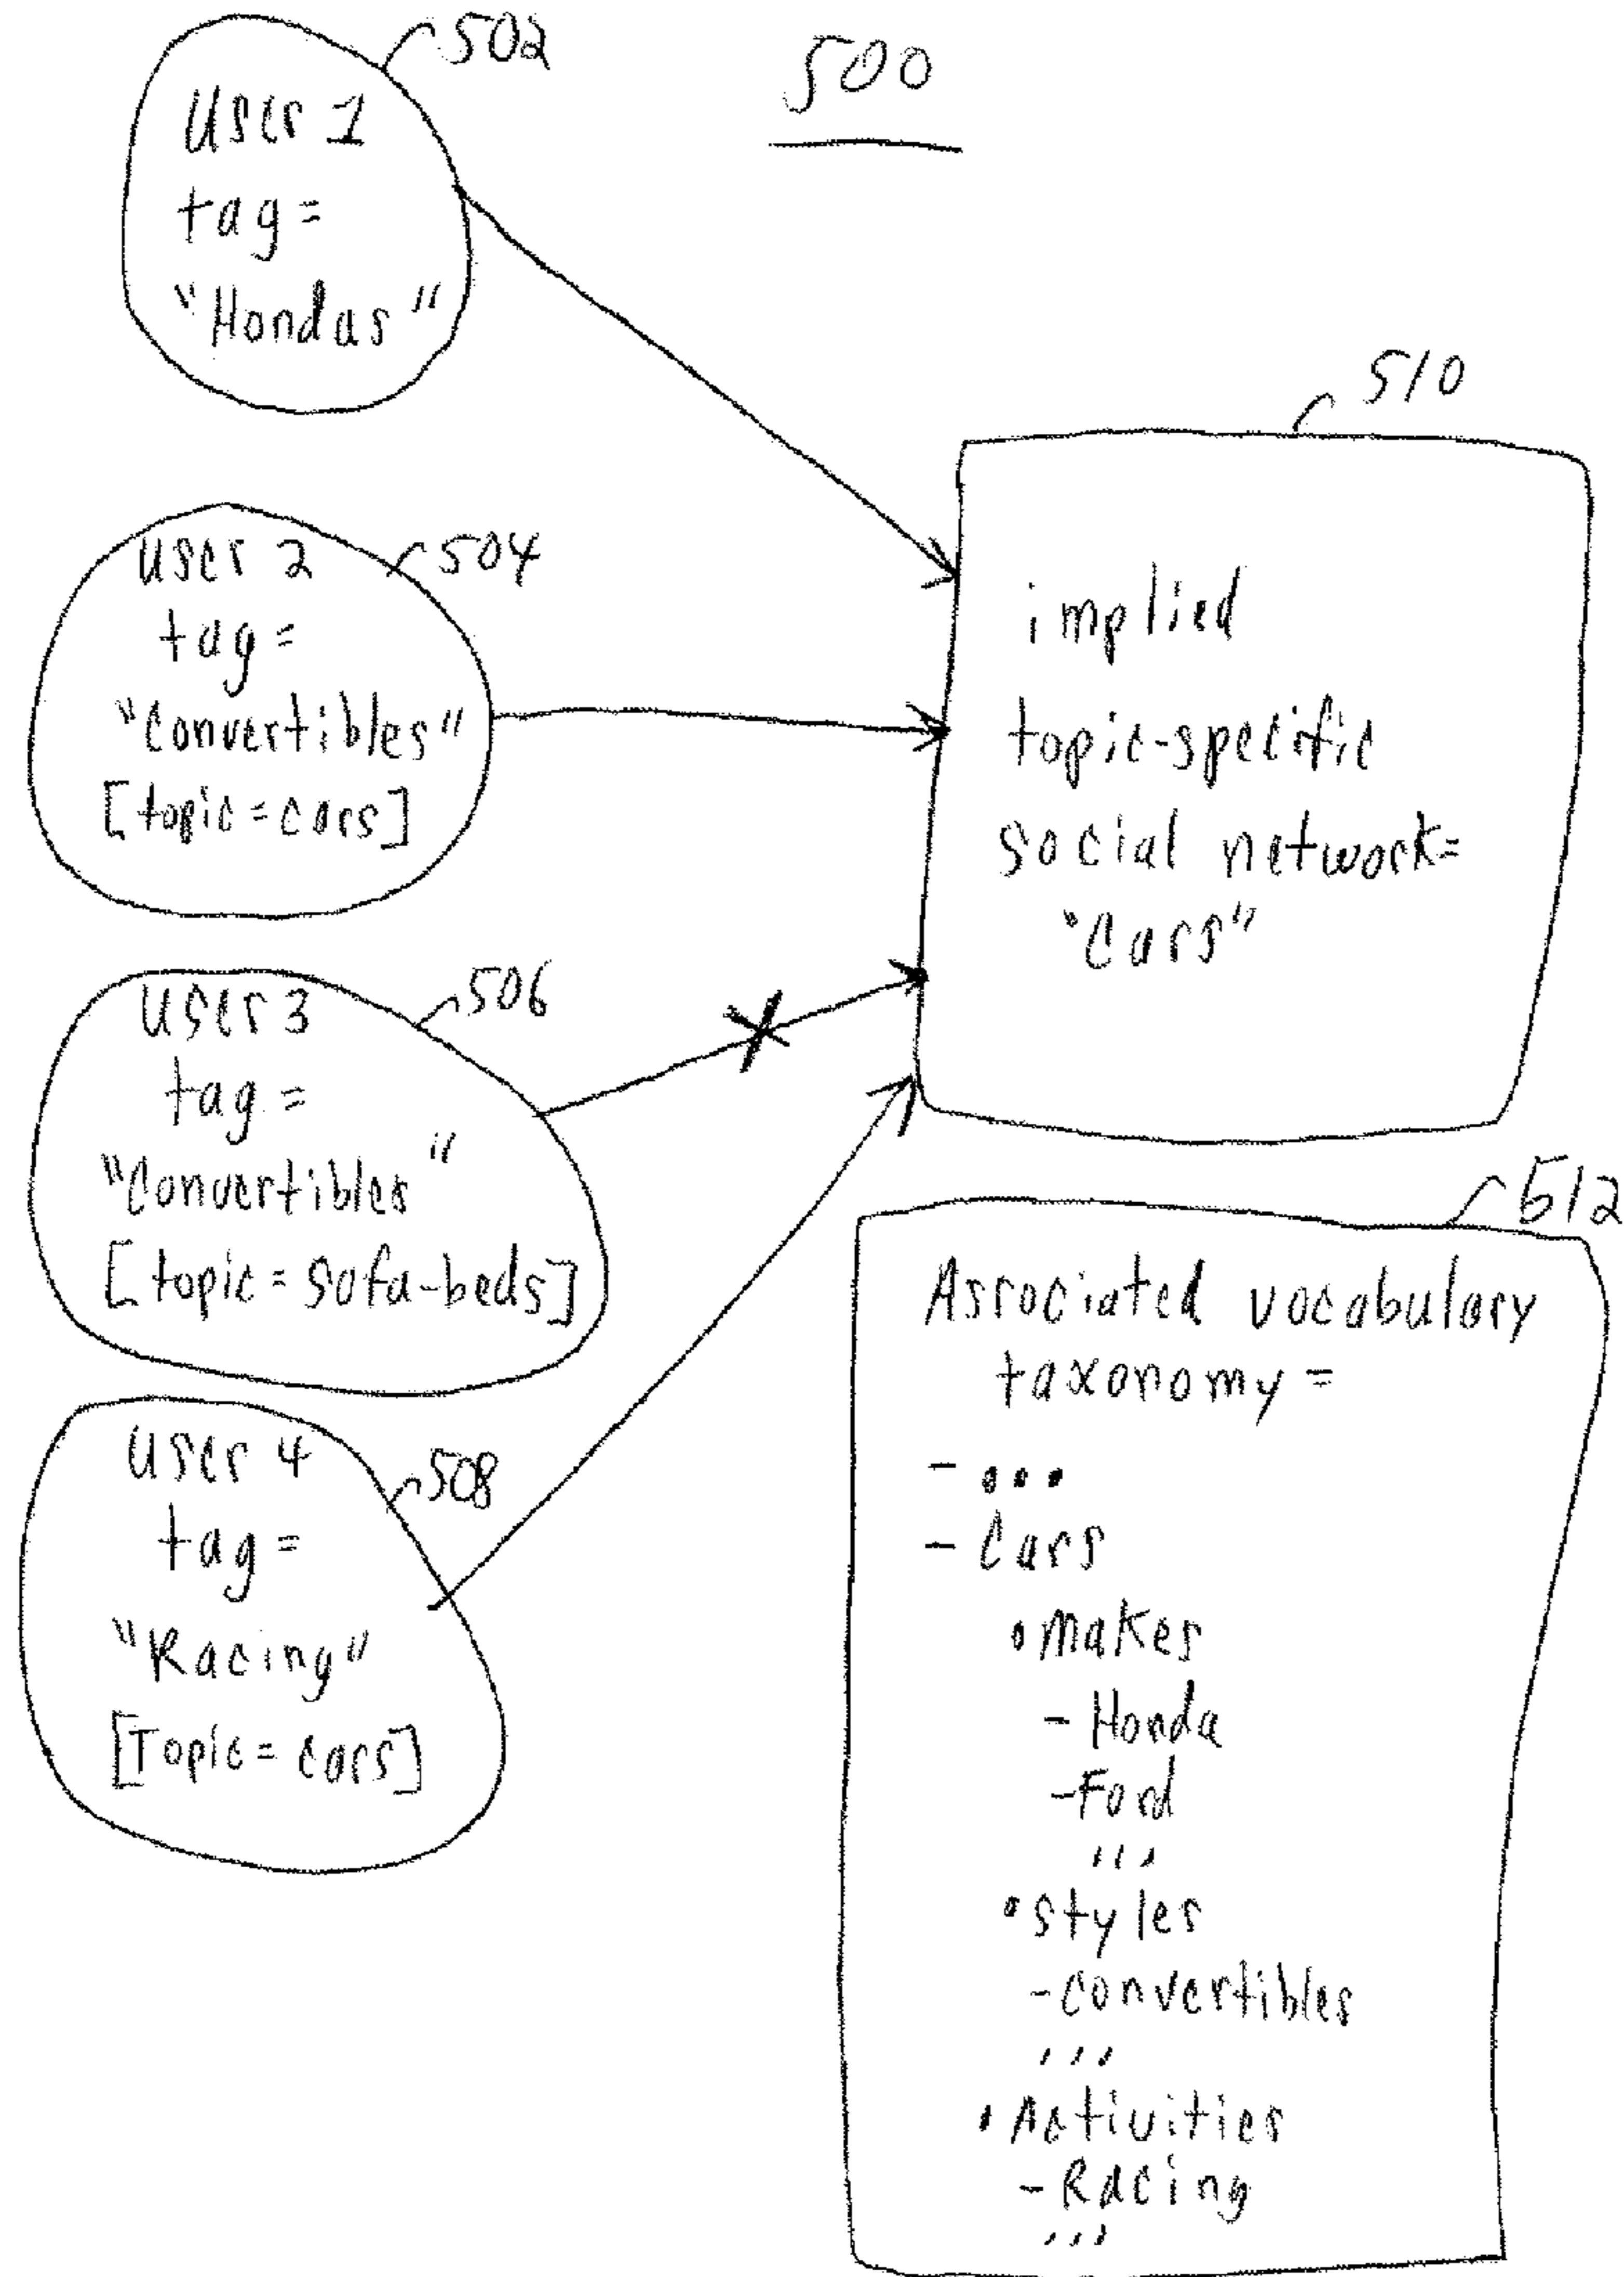 500
502
User 1
tag =
"Hondas"
504
User 2
tag =
"Convertibles"
[topic = cars]
506
User 3
tag =
"Convertibles"
[topic = sofa-beds]
508
User 4
tag =
"Racing"
[Topic = cars]
510
implied
topic-specific
social network=
"Cars"
512
Associated vocabulary
taxonomy =
- ...
- Cars
• Makes
- Honda
- Ford
...
• Styles
- convertibles
...
• Activities
- Racing
...